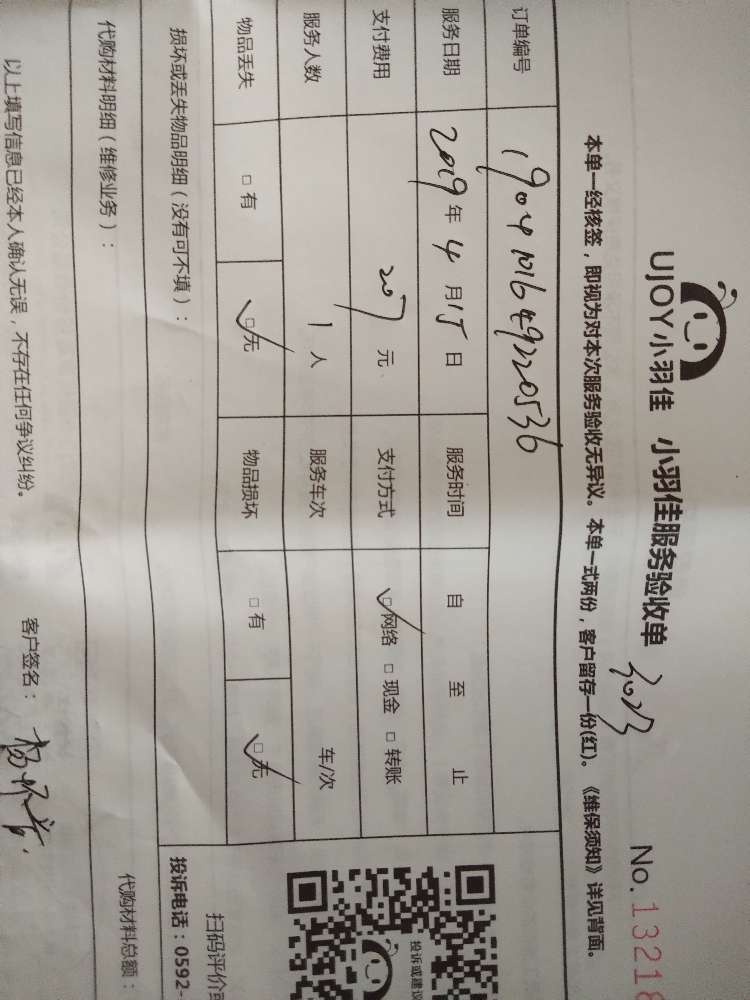 UJOY小羽佳 小羽佳服务验收单
3023
No. 13218
本单一经核签，即视为对本次服务验收无异议。本单一式两份，客户留存一份(红)。《维保须知》详见背面。
订单编号
服务日期 2019年4月15日 服务时间 自 至 止
支付费用 207元 支付方式 ☑网络 □现金 □转账
服务人数 1人 服务车次 车/次
物品丢失 □有 ☑无 物品损坏 □有 ☑无
损坏或丢失物品明细（没有可不填）：
代购材料明细（维修业务）：
代购材料总额：
以上填写信息已经本人确认无误，不存在任何争议纠纷。 客户签名：
投诉或建议
扫码评价或
投诉电话：0592-